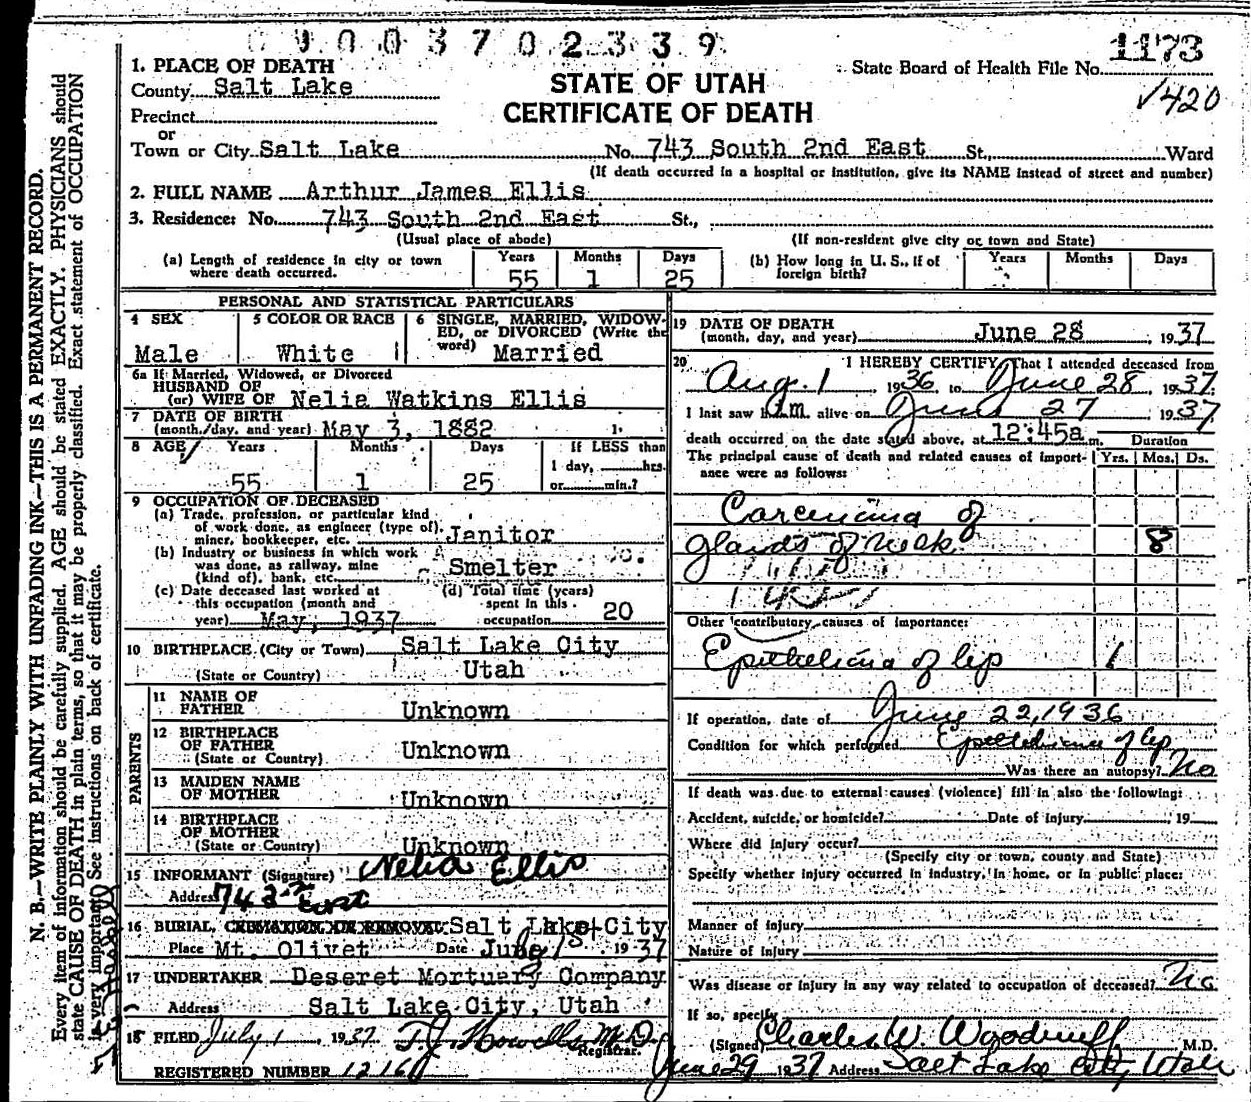 003702339
1173
State Board of Health File No.
√420
STATE OF UTAH
CERTIFICATE OF DEATH
1. PLACE OF DEATH
County Salt Lake
Precinct
or
Town or City Salt Lake No. 743 South 2nd East St., Ward
(If death occurred in a hospital or institution, give its NAME instead of street and number)
2. FULL NAME Arthur James Ellis
3. Residence: No. 743 South 2nd East St.,
(Usual place of abode) (If non-resident give city or town and State)
(a) Length of residence in city or town where death occurred. Years 55 Months 1 Days 25
(b) How long in U. S., if of foreign birth? Years Months Days
PERSONAL AND STATISTICAL PARTICULARS
4 SEX Male
5 COLOR OR RACE White
6 SINGLE, MARRIED, WIDOWED, or DIVORCED (Write the word) Married
6a If Married, Widowed, or Divorced
HUSBAND OF
(or) WIFE OF Nelia Watkins Ellis
7 DATE OF BIRTH
(month, day, and year) May 3, 1882
8 AGE Years 55 Months 1 Days 25 If LESS than 1 day, hrs. or min.?
9 OCCUPATION OF DECEASED
(a) Trade, profession, or particular kind of work done, as engineer (type of), miner, bookkeeper, etc. Janitor
(b) Industry or business in which work was done, as railway, mine (kind of), bank, etc. Smelter
(c) Date deceased last worked at this occupation (month and year) May, 1937
(d) Total time (years) spent in this occupation 20
10 BIRTHPLACE (City or Town) Salt Lake City
(State or Country) Utah
PARENTS
11 NAME OF FATHER Unknown
12 BIRTHPLACE OF FATHER (State or Country) Unknown
13 MAIDEN NAME OF MOTHER Unknown
14 BIRTHPLACE OF MOTHER (State or Country) Unknown
15 INFORMANT (Signature) Nelia Ellis
Address 743 2nd East
16 BURIAL, CREMATION OR REMOVAL Salt Lake City
Place Mt. Olivet Date July 1st 1937
17 UNDERTAKER Deseret Mortuary Company
Address Salt Lake City, Utah
18 FILED July 1, 1937 T.J. Howells M.D.
Registrar.
REGISTERED NUMBER 1216
19 DATE OF DEATH
(month, day, and year) June 28, 1937
20 I HEREBY CERTIFY, That I attended deceased from
Aug. 1 1936 to June 28, 1937.
I last saw him alive on June 27 1937
death occurred on the date stated above, at 12:45a m. Duration
The principal cause of death and related causes of importance were as follows: Yrs. Mos. Ds.
Carcinoma of
glands of neck 8
Other contributory causes of importance:
Epithelioma of lip 1
If operation, date of June 22, 1936
Condition for which performed Epithelioma of lip
Was there an autopsy? No
If death was due to external causes (violence) fill in also the following:
Accident, suicide, or homicide? Date of injury , 19
Where did injury occur?
(Specify city or town, county and State)
Specify whether injury occurred in industry, in home, or in public place:
Manner of injury
Nature of injury
Was disease or injury in any way related to occupation of deceased? No
If so, specify
(Signed) Charles W. Woodruff, M.D.
June 29 1937 Address Salt Lake City Utah
N. B.—WRITE PLAINLY WITH UNFADING INK—THIS IS A PERMANENT RECORD.
Every item of information should be carefully supplied. AGE should be stated EXACTLY. PHYSICIANS should
state CAUSE OF DEATH in plain terms, so that it may be properly classified. Exact statement of OCCUPATION
is very important. See instructions on back of certificate.